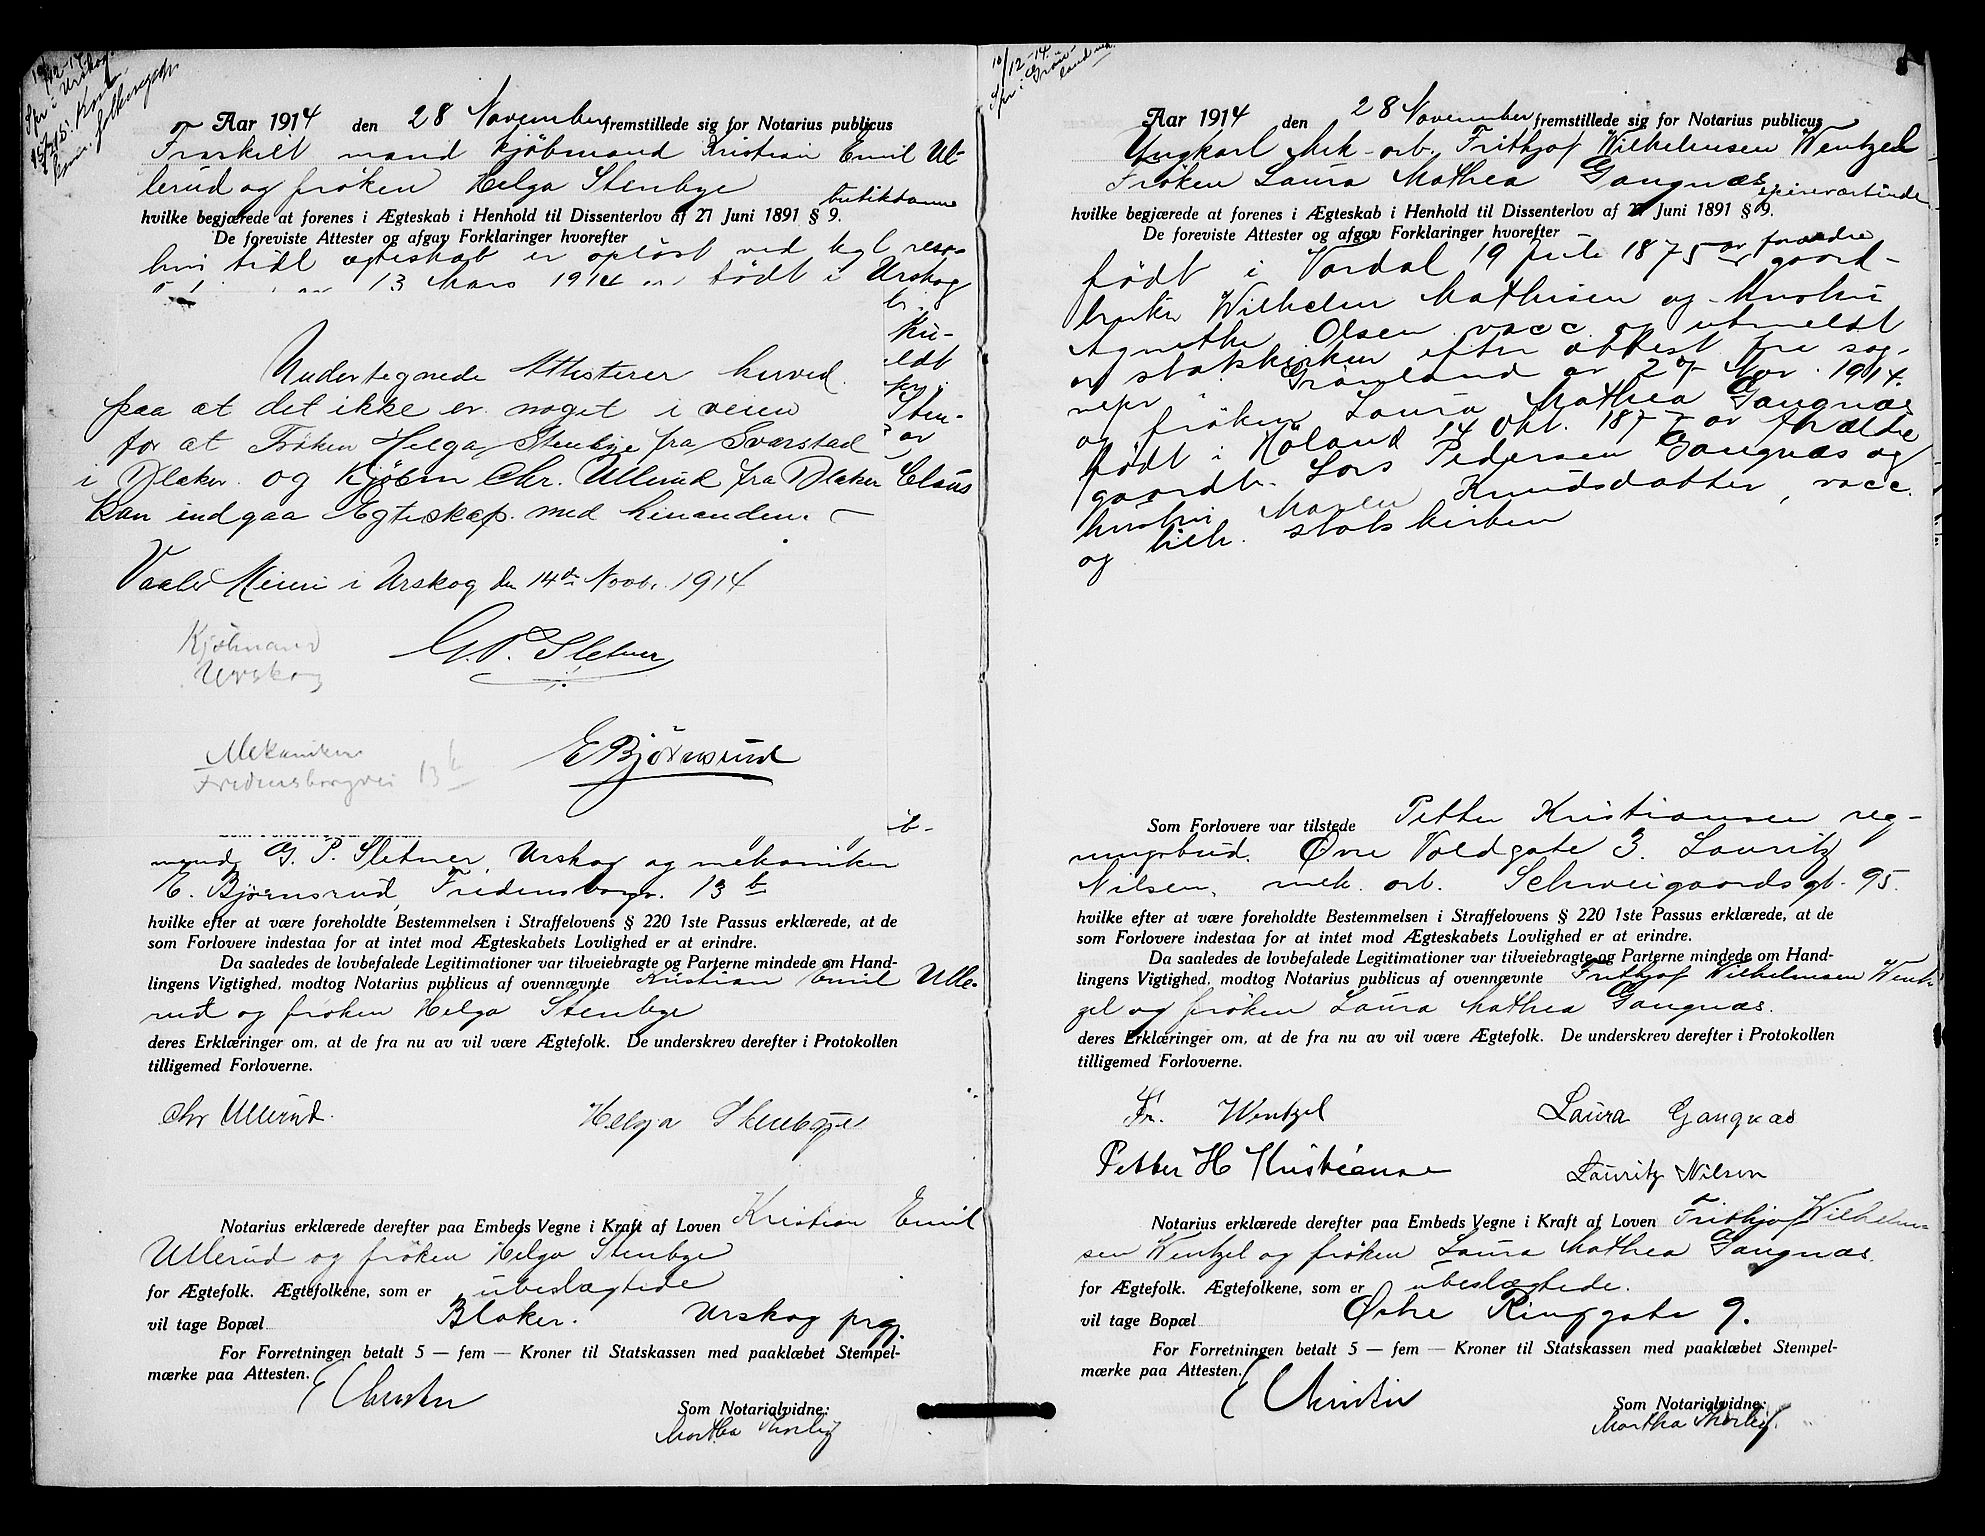 10/12-14
Spr i Urskog
15/2 15. Kom.
Aar 1914 den 28 November fremstillede sig for Notarius publicus
Fraskilt mand kjöbmand Kristian Emil Ul-
lerud og fröken Helga Stenbye
butikdame
hvilke begjærede at forenes i Ægteskab i Henhold til Dissenterlov af 27 Juni 1891 § 9.
De foreviste Attester og afgav Forklaringer hvorefter
hvis tidl ægteskab er oplöst ved kgl reso-
13 Mars 1914 født i Urskog
Undertegnede Attisterer herved
paa at det ikke er noget i veien
for at Frøken Helga Stenbye fra Svarstad
i Blaker og Kjøbm Chr. Ullerud fra Blaker
Kan indgaa Ægteskap med hinanden. –
Vaaler Meieri i Urskog den 14de Novb. 1914
Kjöbmand
Urskog
G. P. Sletner
Mekaniker
Fredensborgvei 13 b
E Bjørnsrud
ku-
ldt
Sten-
av
Claus
mand G. P. Sletner, Urskog og mekaniker
E. Björnsrud, Fredensborgv. 13 b
hvilke efter at være foreholdte Bestemmelsen i Straffelovens § 220 1ste Passus erklærede, at de
som Forlovere indestaa for at intet mod Ægteskabets Lovlighed er at erindre.
Da saaledes de lovbefalede Legitimationer var tilveiebragte og Parterne mindede om Hand-
lingens Vigtighed, modtog Notarius publicus af ovennævnte Kristian Emil Ulle-
rud og fröken Helga Stenbye
deres Erklæringer om, at de fra nu av vil være Ægtefolk. De underskrev derefter i Protokollen
tilligemed Forloverne.
Chr Ullerud. Helga Stenbye
Notarius erklærede derefter paa Embeds Vegne i Kraft af Loven Kristian Emil
Ullerud og fröken Helga Stenbye
for Ægtefolk. Ægtefolkene, som er ubeslægtede
vil tage Bopæl Blaker. Urskog prgj.
For Forretningen betalt 5 — fem — Kroner til Statskassen med paaklæbet Stempel-
mærke paa Attesten.
E Christie
Som Notarialvidne:
Martha Thorbjg
10/12-14
Spr i Grön-
land
Aar 1914 den 28 November fremstillede sig for Notarius publicus
Ungkarl Mek-arb. Frithjof Wilhelmsen Wentzel
Fröken Laura Mathea Gangnæs
spiseværtinde
hvilke begjærede at forenes i Ægteskab i Henhold til Dissenterlov af 27 Juni 1891 § 9.
De foreviste Attester og afgav Forklaringer hvorefter
født i Vardal 19 Juli 1875 av forældre gaard-
bruker Wilhelm Mathisen og hustru
Agnethe Olsen vacc og utmeldt
av statskirken efter attest fra sog-
nepr i Grönland av 27 Nov. 1914.
og fröken Laura Mathea Gangnæs
født i Höland 14 Okt. 1877 av forældre
gaardb. Lars Pedersen Gangnæs og
hustru Maren Knudsdatter, vacc.
og tilh. statskirken
Som Forlovere var tilstede Petter Kristiansen reg-
ningsbud. Övre Voldgate 3. Lauritz
Nilsen, mek. arb. Schweigaardsgt. 95.
hvilke efter at være foreholdte Bestemmelsen i Straffelovens § 220 1ste Passus erklærede, at de
som Forlovere indestaa for at intet mod Ægteskabets Lovlighed er at erindre.
Da saaledes de lovbefalede Legitimationer var tilveiebragte og Parterne mindede om Hand-
lingens Vigtighed, modtog Notarius publicus af ovennævnte Frithjof Wilhelmsen Went-
zel og fröken Laura Mathea Gangnæs.
deres Erklæringer om, at de fra nu av vil være Ægtefolk. De underskrev derefter i Protokollen
tilligemed Forloverne.
Fr. Wentzel Laura Gangnæs
Petter H Kristianse Lauritz Nilsen
Notarius erklærede derefter paa Embeds Vegne i Kraft af Loven Frithjof Wilhelm-
sen Wentzel og fröken Laura Mathea Gangnæs
for Ægtefolk. Ægtefolkene, som er ubeslægtede.
vil tage Bopæl Østre Ringgate 9.
For Forretningen betalt 5 — fem — Kroner til Statskassen med paaklæbet Stempel-
mærke paa Attesten.
E Christie
Som Notarialvidne:
Martha Thorbjg.